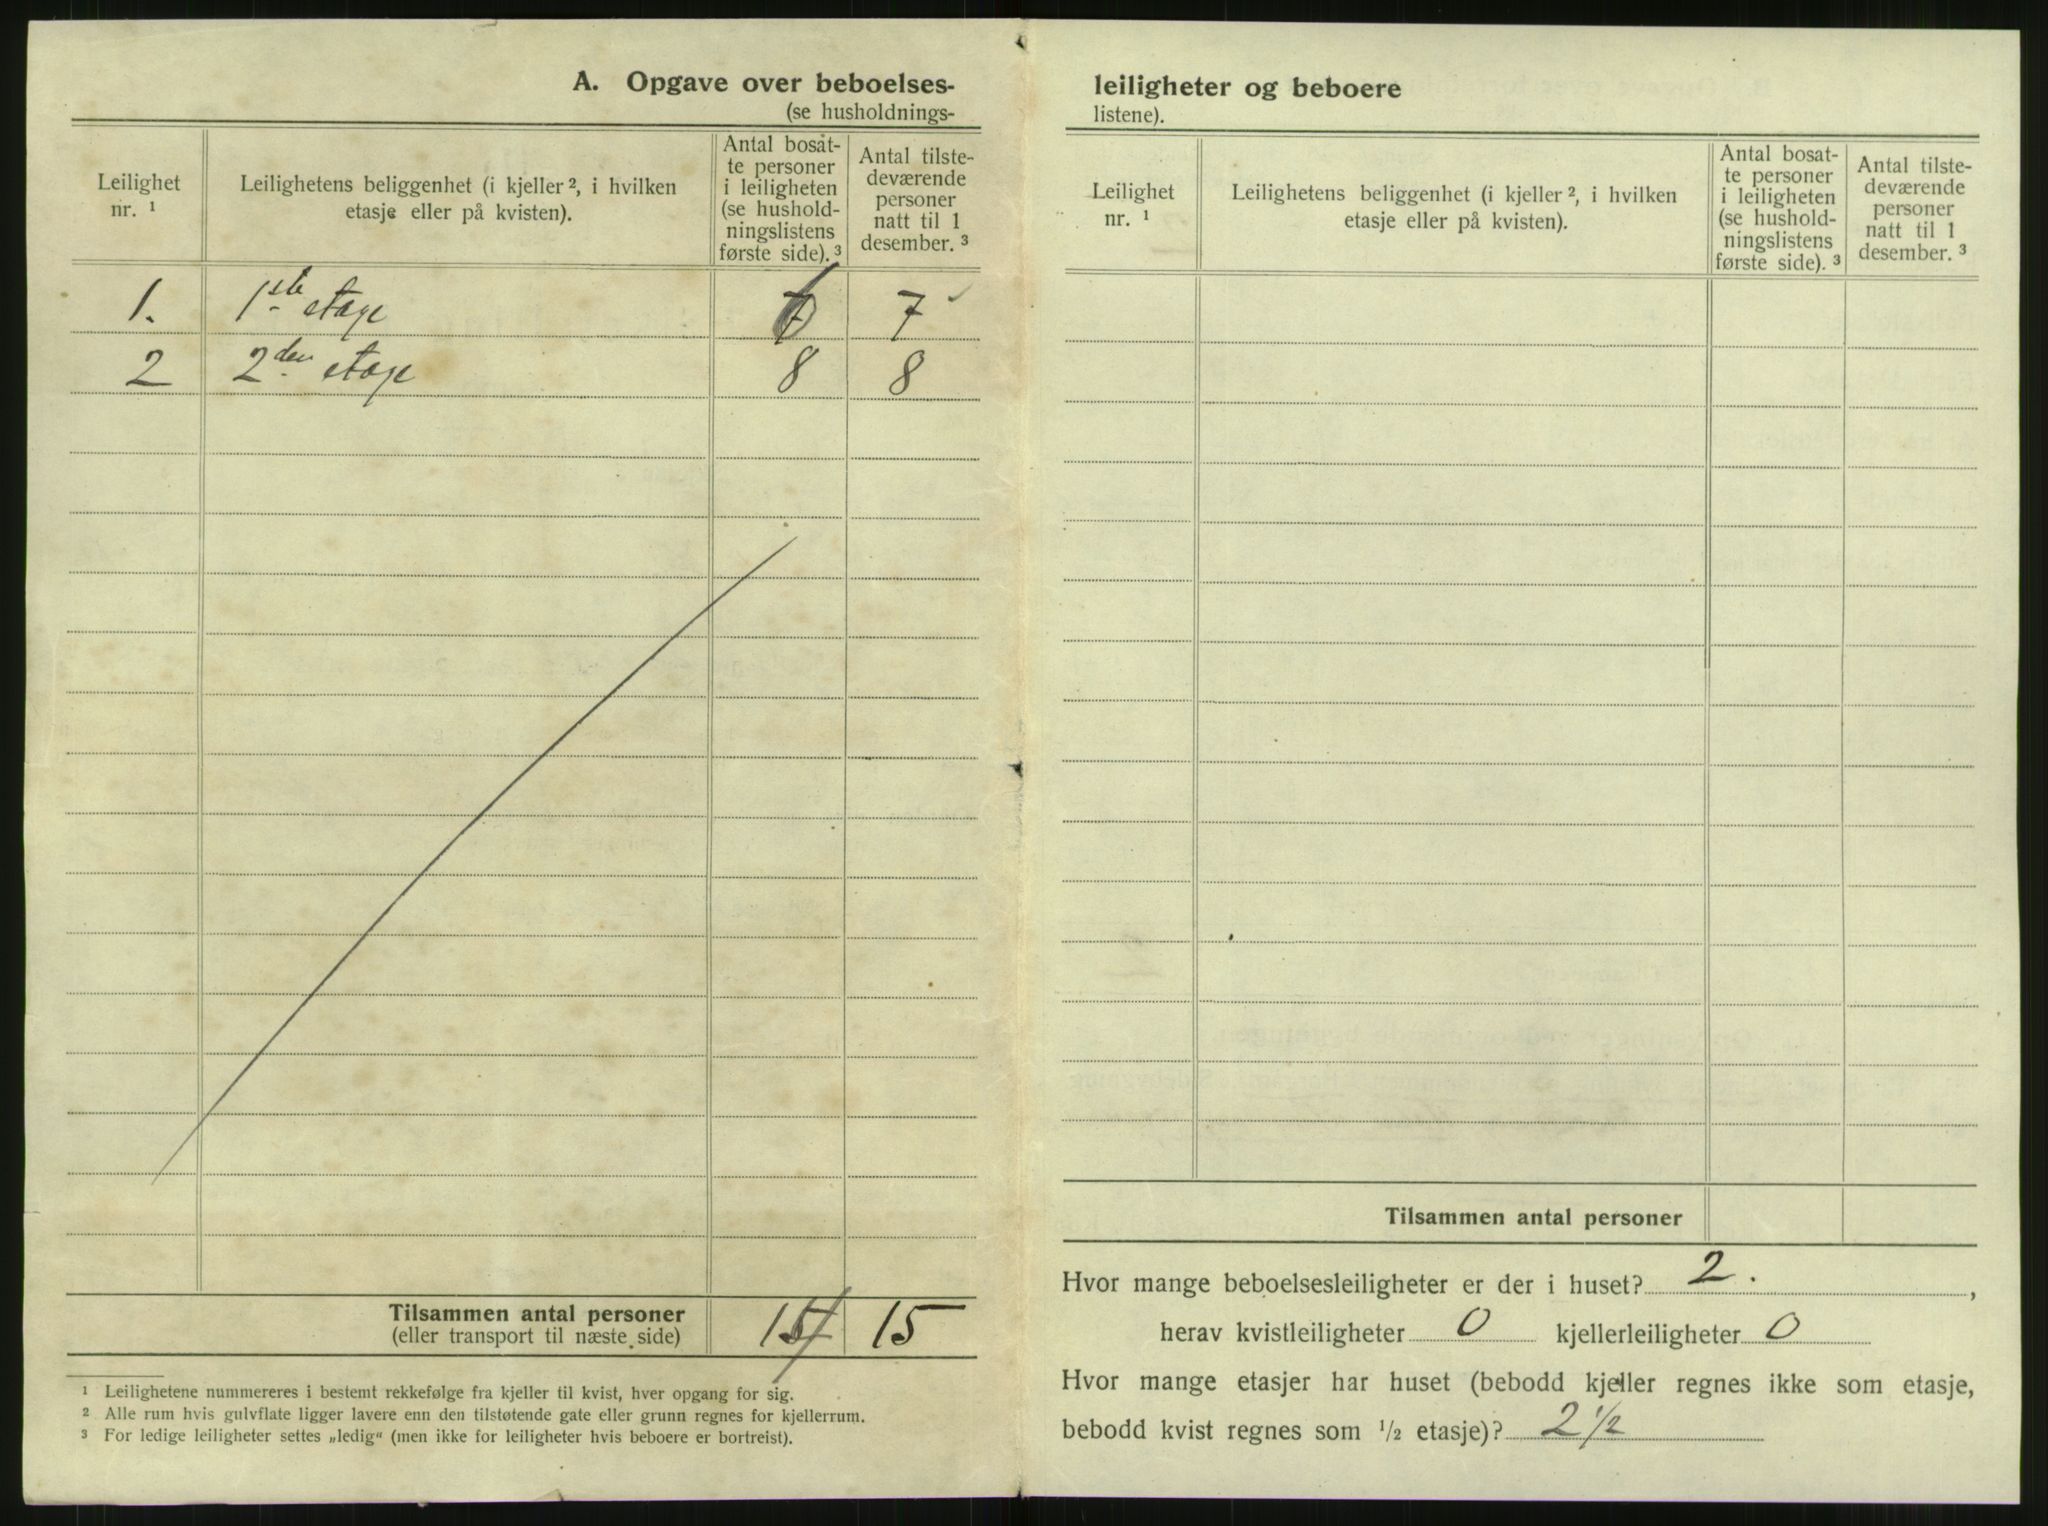 A. Opgave over beboelses-
(se husholdnings-
Leilighet nr. ¹
Leilighetens beliggenhet (i kjeller ², i hvilken
etasje eller på kvisten).
Antal bosat-
te personer
i leiligheten
(se hushold-
ningslistens
første side). ³
Antal tilste-
deværende
personer
natt til 1
desember. ³
1. 1ste etage 7
2 2den etage 8 8
Tilsammen antal personer
(eller transport til næste side)
15
¹ Leilighetene nummereres i bestemt rekkefølge fra kjeller til kvist, hver opgang for sig.
² Alle rum hvis gulvflate ligger lavere enn den tilstøtende gate eller grunn regnes for kjellerrum.
³ For ledige leiligheter settes „ledig“ (men ikke for leiligheter hvis beboere er bortreist).
leiligheter og beboere
listene).
Leilighet
nr. ¹
Leilighetens beliggenhet (i kjeller ², i hvilken
etasje eller på kvisten).
Antal bosat-
te personer
i leiligheten
(se hushold-
ningslistens
første side). ³
Antal tilste-
deværende
personer
natt til 1
desember. ³
Tilsammen antal personer
Hvor mange beboelsesleiligheter er der i huset? 2. ,
herav kvistleiligheter 0 kjellerleiligheter 0
Hvor mange etasjer har huset (bebodd kjeller regnes ikke som etasje,
bebodd kvist regnes som ½ etasje)? 2 ½